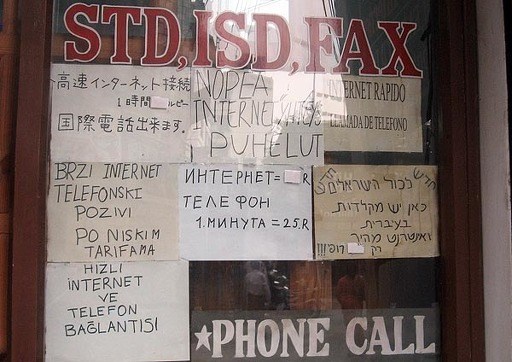 STD, ISD, FAX
高速インターネット接続
1時間 ルピー
国際電話出来ます.
NOPEA
INTERNET YHTEYS
PUHELUT
INTERNET RAPIDO
LLAMADA DE TELEFONO
BRZI INTERNET
TELEFONSKI
POZIVI
PO NISKIM
TARIFAMA
ИНТЕРНЕТ= R
ТЕЛЕФОН
1.МИНУТА = 25.R
חדש
לכול הישראלים
חדש
כאן יש מקלדות
בעיברית
ואינטרנט מהיר
רק רופי!!!
HIZLI
INTERNET
VE
TELEFON
BAĞLANTISI
★PHONE CALL